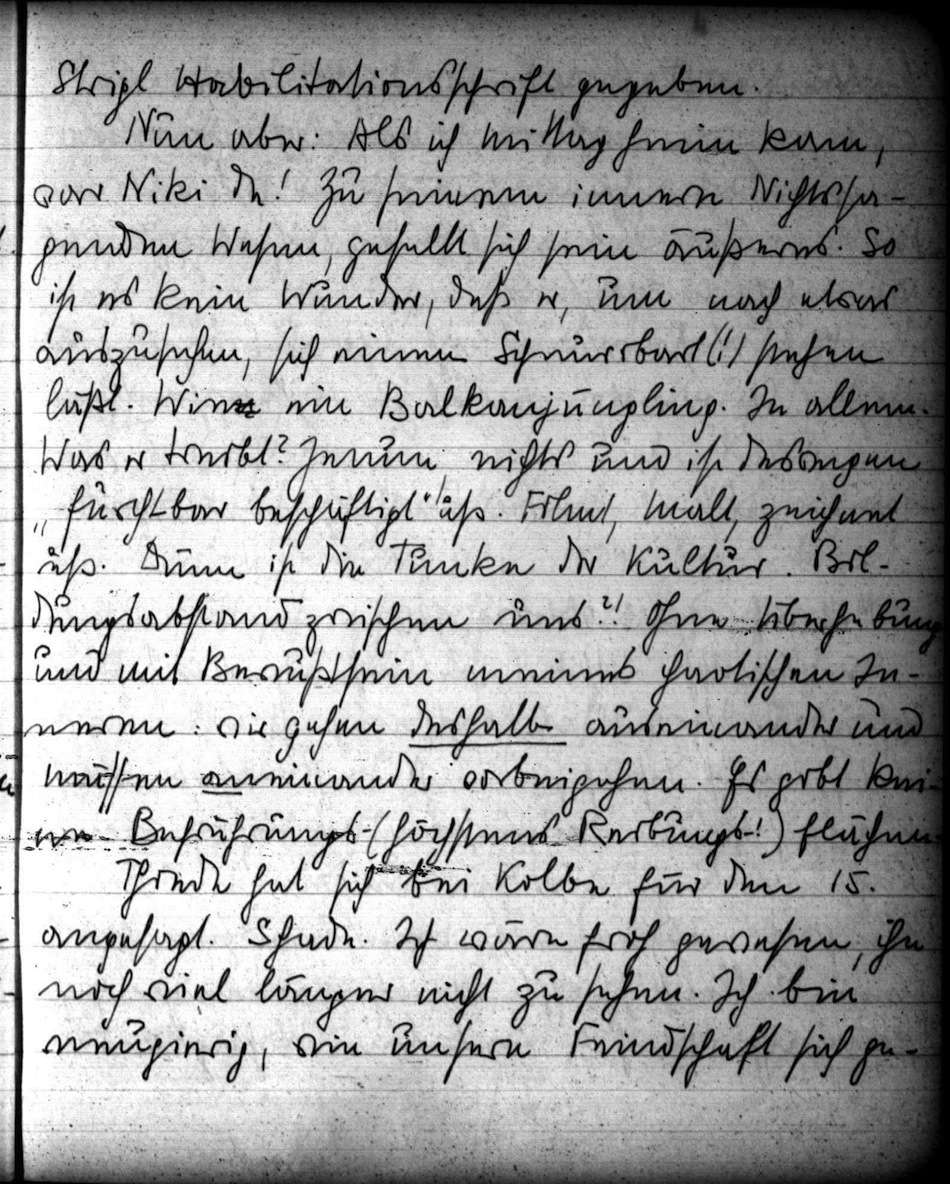 Strigl Habilitationsschrift gegeben.
Nun aber: Als ich mittag heim kam,
war Niki da! Zu seinem innern Nichtssa-
genden Wesen, gesellt sich sein äußeres. So
ist es kein Wunder, daß er, um nach etwas
auszusehen, sich einen Schnurrbart(!) stehen
läßt. Wie ein Balkanjüngling. In allem.
Was er treibt? Genau nichts und ist deswegen
„furchtbar beschäftigt"! usf. Filmt, malt, zeichnet
usf. Dünn ist die Tünke der Kultur. Bil-
dungsabstand zwischen uns?! Ohne Überhebung
und mit Bewußtsein meines chaotischen In-
neren: wir gehen deshalb auseinander und
müssen aneinander vorbeigehen. Es gibt kei-
ne Berührungs-(höchstens Reibungs-!) flächen.
Thiede hat sich bei Kolbe für den 15.
angesagt. Schade. Ich wäre froh gewesen, ihn
noch viel länger nicht zu sehen. Ich bin
neugierig, wie unsere Feindschaft sich ge-